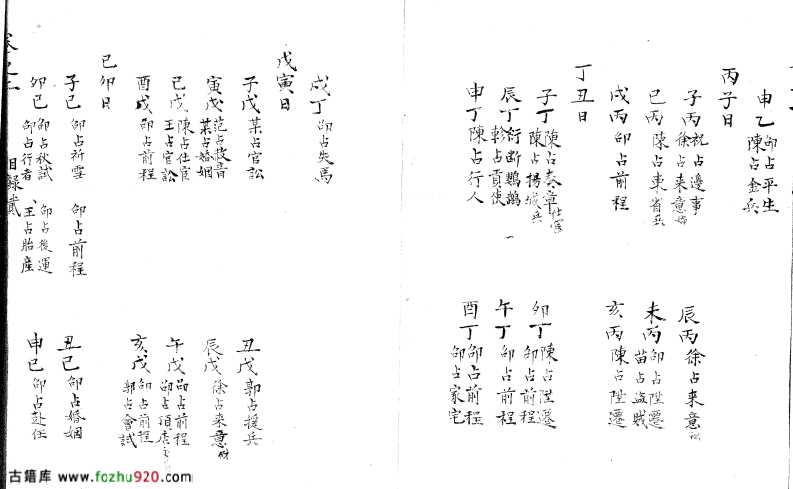 申乙 邵占平生
陳占金兵
丙子日
子丙 祝占邊事
徐占来意
辰丙 徐占来意
巳丙 陳占東省兵
未丙 邵占陞遷
苗占盜賊
戌丙 邵占前程
亥丙 陳占陞遷
丁丑日
子丁 陳占奏章
陳占揚城兵
卯丁 陳占陞遷
邵占前程
辰丁 衍斷鸚鵡
乾占貢使
午丁 邵占前程
申丁 陳占行人
酉丁 邵占前程
邵占家宅
戌丁 邵占失馬
戊寅日
子戊 某占官訟
丑戊 郭占援兵
寅戊 范占救音
某占婚姻
辰戊 徐占来意
巳戊 陳占仕官
王占官訟
午戊 邵占前程
酉戊 邵占前程
亥戊 邵占前程
郭占會試
己卯日
子己 邵占祈雪 邵占前程
丑己 邵占婚姻
卯己 邵占秋試 邵占後運
邵占行者 王占胎產
申己 邵占赴任
目錄貳
古籍库 www.fozhu920.com